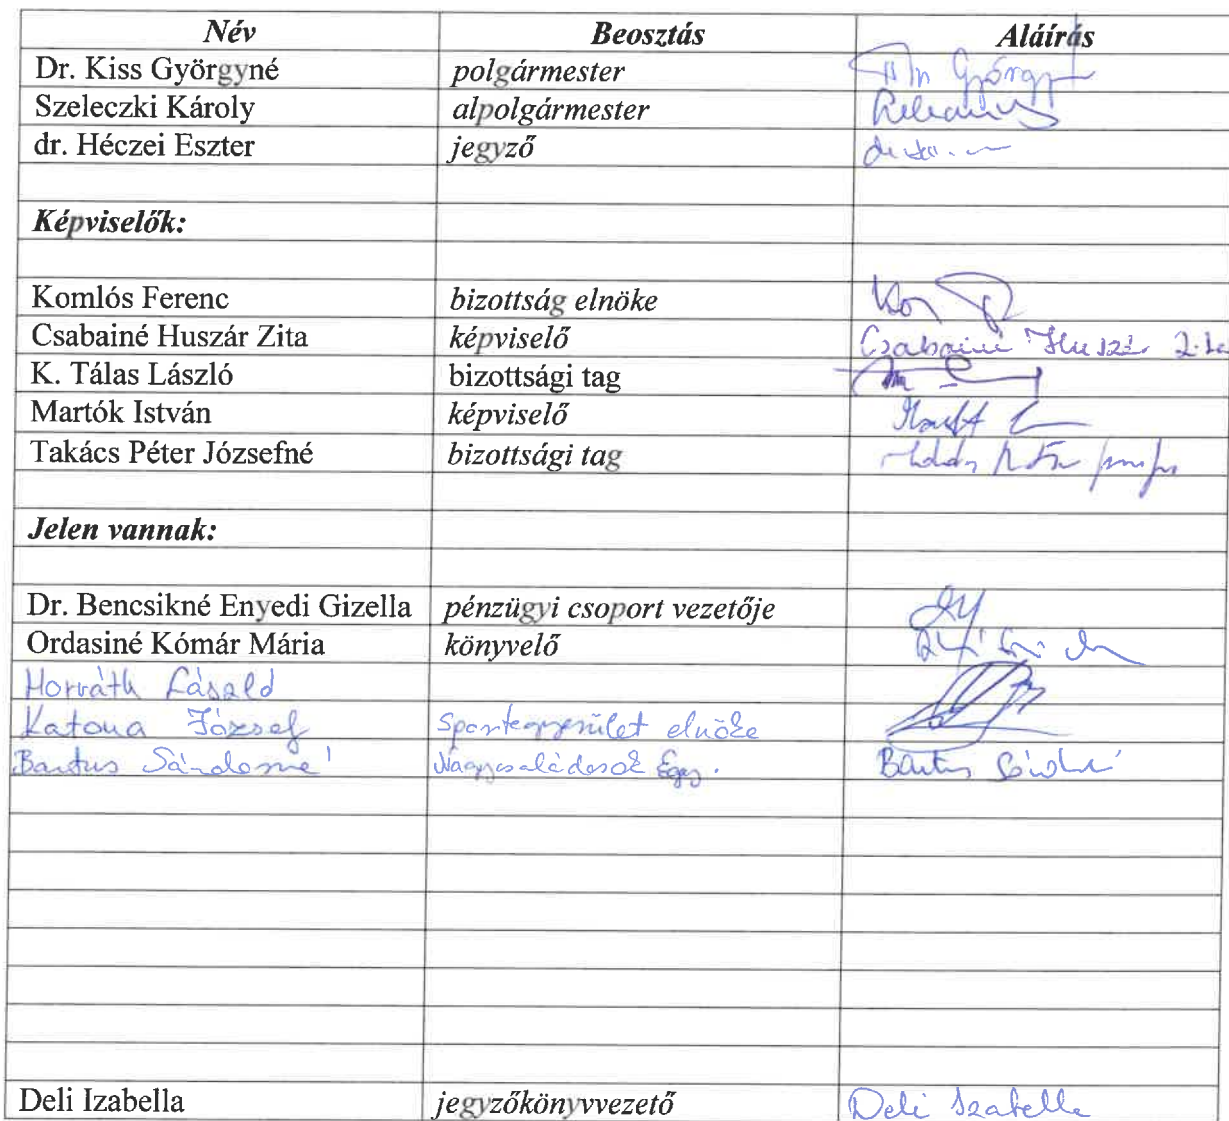 Név Beosztás Aláírás
Dr. Kiss Györgyné polgármester György
Szeleczki Károly alpolgármester
dr. Héczei Eszter jegyző
Képviselők:
Komlós Ferenc bizottság elnöke
Csabainé Huszár Zita képviselő Csabainé Huszár Z
K. Tálas László bizottsági tag
Martók István képviselő
Takács Péter Józsefné bizottsági tag
Jelen vannak:
Dr. Bencsikné Enyedi Gizella pénzügyi csoport vezetője
Ordasiné Kómár Mária könyvelő
Horváth László
Katona József Sportegyesület elnöke
Bartus Sándorné Nagycsaládosok Egy. Bartus Sándorné
Deli Izabella jegyzőkönyvvezető Deli Izabella